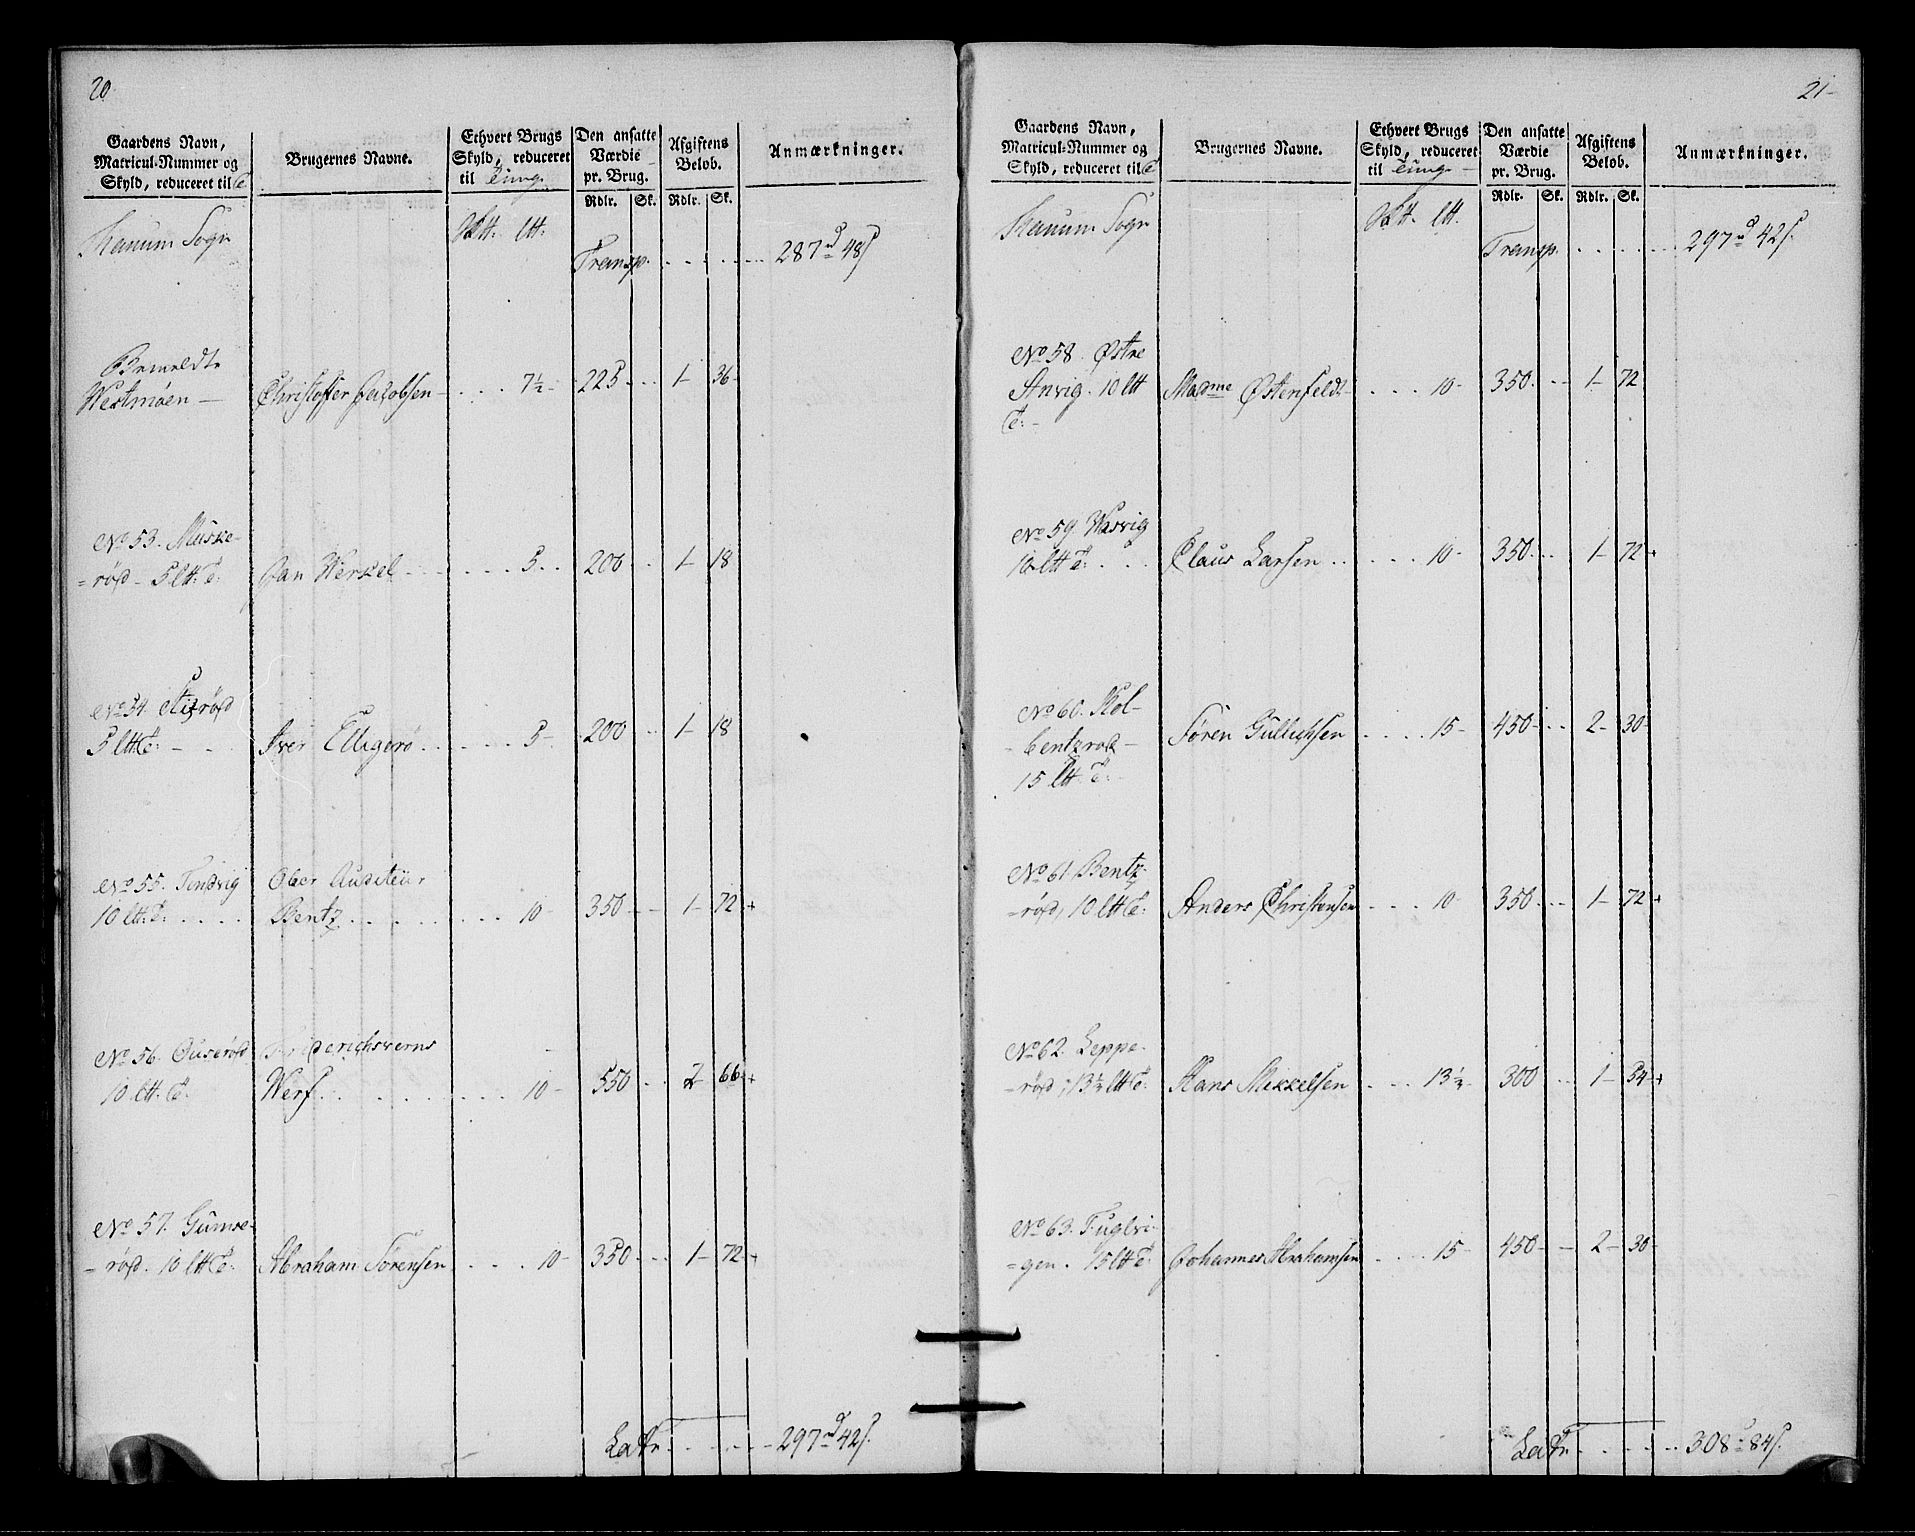 20
Gaardens Navn,
Matricul-Nummer og
Skyld, reduceret til T
Brugernes Navne.
Ethvert Brugs
Skyld, reduceret
til Tung.
Den ansatte
Værdie
pr. Brug.
Afgiftens
Beløb.
Anmærkninger.
Rdlr. Sk. Rdlr. Sk.
Sogn
ltt.
Transp. 287 rd 48 s
Bemeldte
Westmøen — Christoffer Jacobsen 7½ 225 1 36
No 53. Muske-
=röd 5 ltt T: Jan Werkel 5 200 1 18
No 54.
5 ltt T: Iver Elligerø 5 200 1 18
No 55. Tindvig Ober Auditeur
10 ltt T: Bentz 10 350 1 72
No 56. Ouseröd Friderichsverns
10 ltt. T: Werf 10 550 2 66
No 57. Gumse-
=röd. 10 ltt T: Abraham Sørensen 10 350 1 72
Latr 297 rd 42 s.
21
Gaardens Navn,
Matricul-Nummer og
Skyld, reduceret til T
Brugernes Navne.
Ethvert Brugs
Skyld, reduceret
til Tung
Den ansatte
Værdie
pr. Brug.
Afgiftens
Beløb.
Anmærkninger.
Rdlr. Sk. Rdlr. Sk.
Sogn
ltt.
Transp. 297 rd 42 s.
No 58. Østre
Anvig. 10 ltt Madme Østenfeldt 10 350 1 72
T:
No 59. Wasvig
10 ltt T: Claus Larsen 10 350 1 72
No 60. Kol-
bentzrød Søren Gullichsen 15 450 2 30
15 ltt T:
No 61 Bentz-
=röd, 10 ltt T: Anders Christensen 10 350 1 72
No 62. Leppe-
röd, 13½ ltt T: Hans Mikkelsen 13½ 300 1 54
No 63. Fuglevi-
=gen. 15 ltt T: Johannes Abrahamsen 15 450 2 30
Latr 308 84 s.